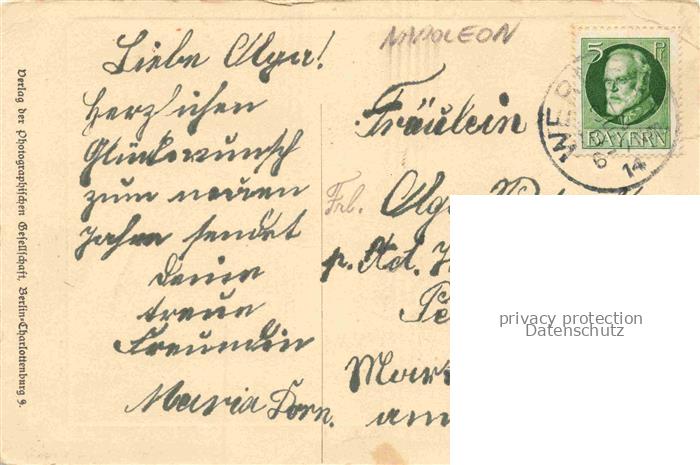 NAPOLEON
Liebe Olga!
Herzlichen
Glückwunsch
zum neuen
Jahre sendet
Deine
treue
Freundin
Maria Dorn.
Fräulein
Frl. Olga
p. Ad.
am
5 Pf
BAYERN
WER
6-7
14
Verlag der Photographischen Gesellschaft, Berlin-Charlottenburg 9.
privacy protection
Datenschutz